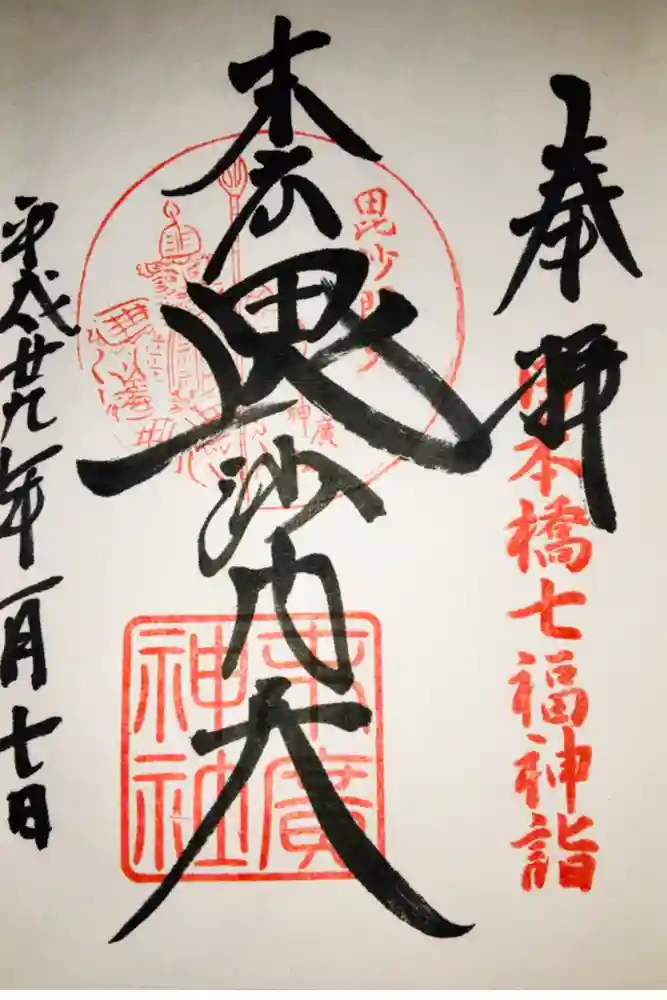 奉拝
日本橋七福神詣
末広毘沙門天
毘沙門天
末廣
神社
平成廿九年一月七日